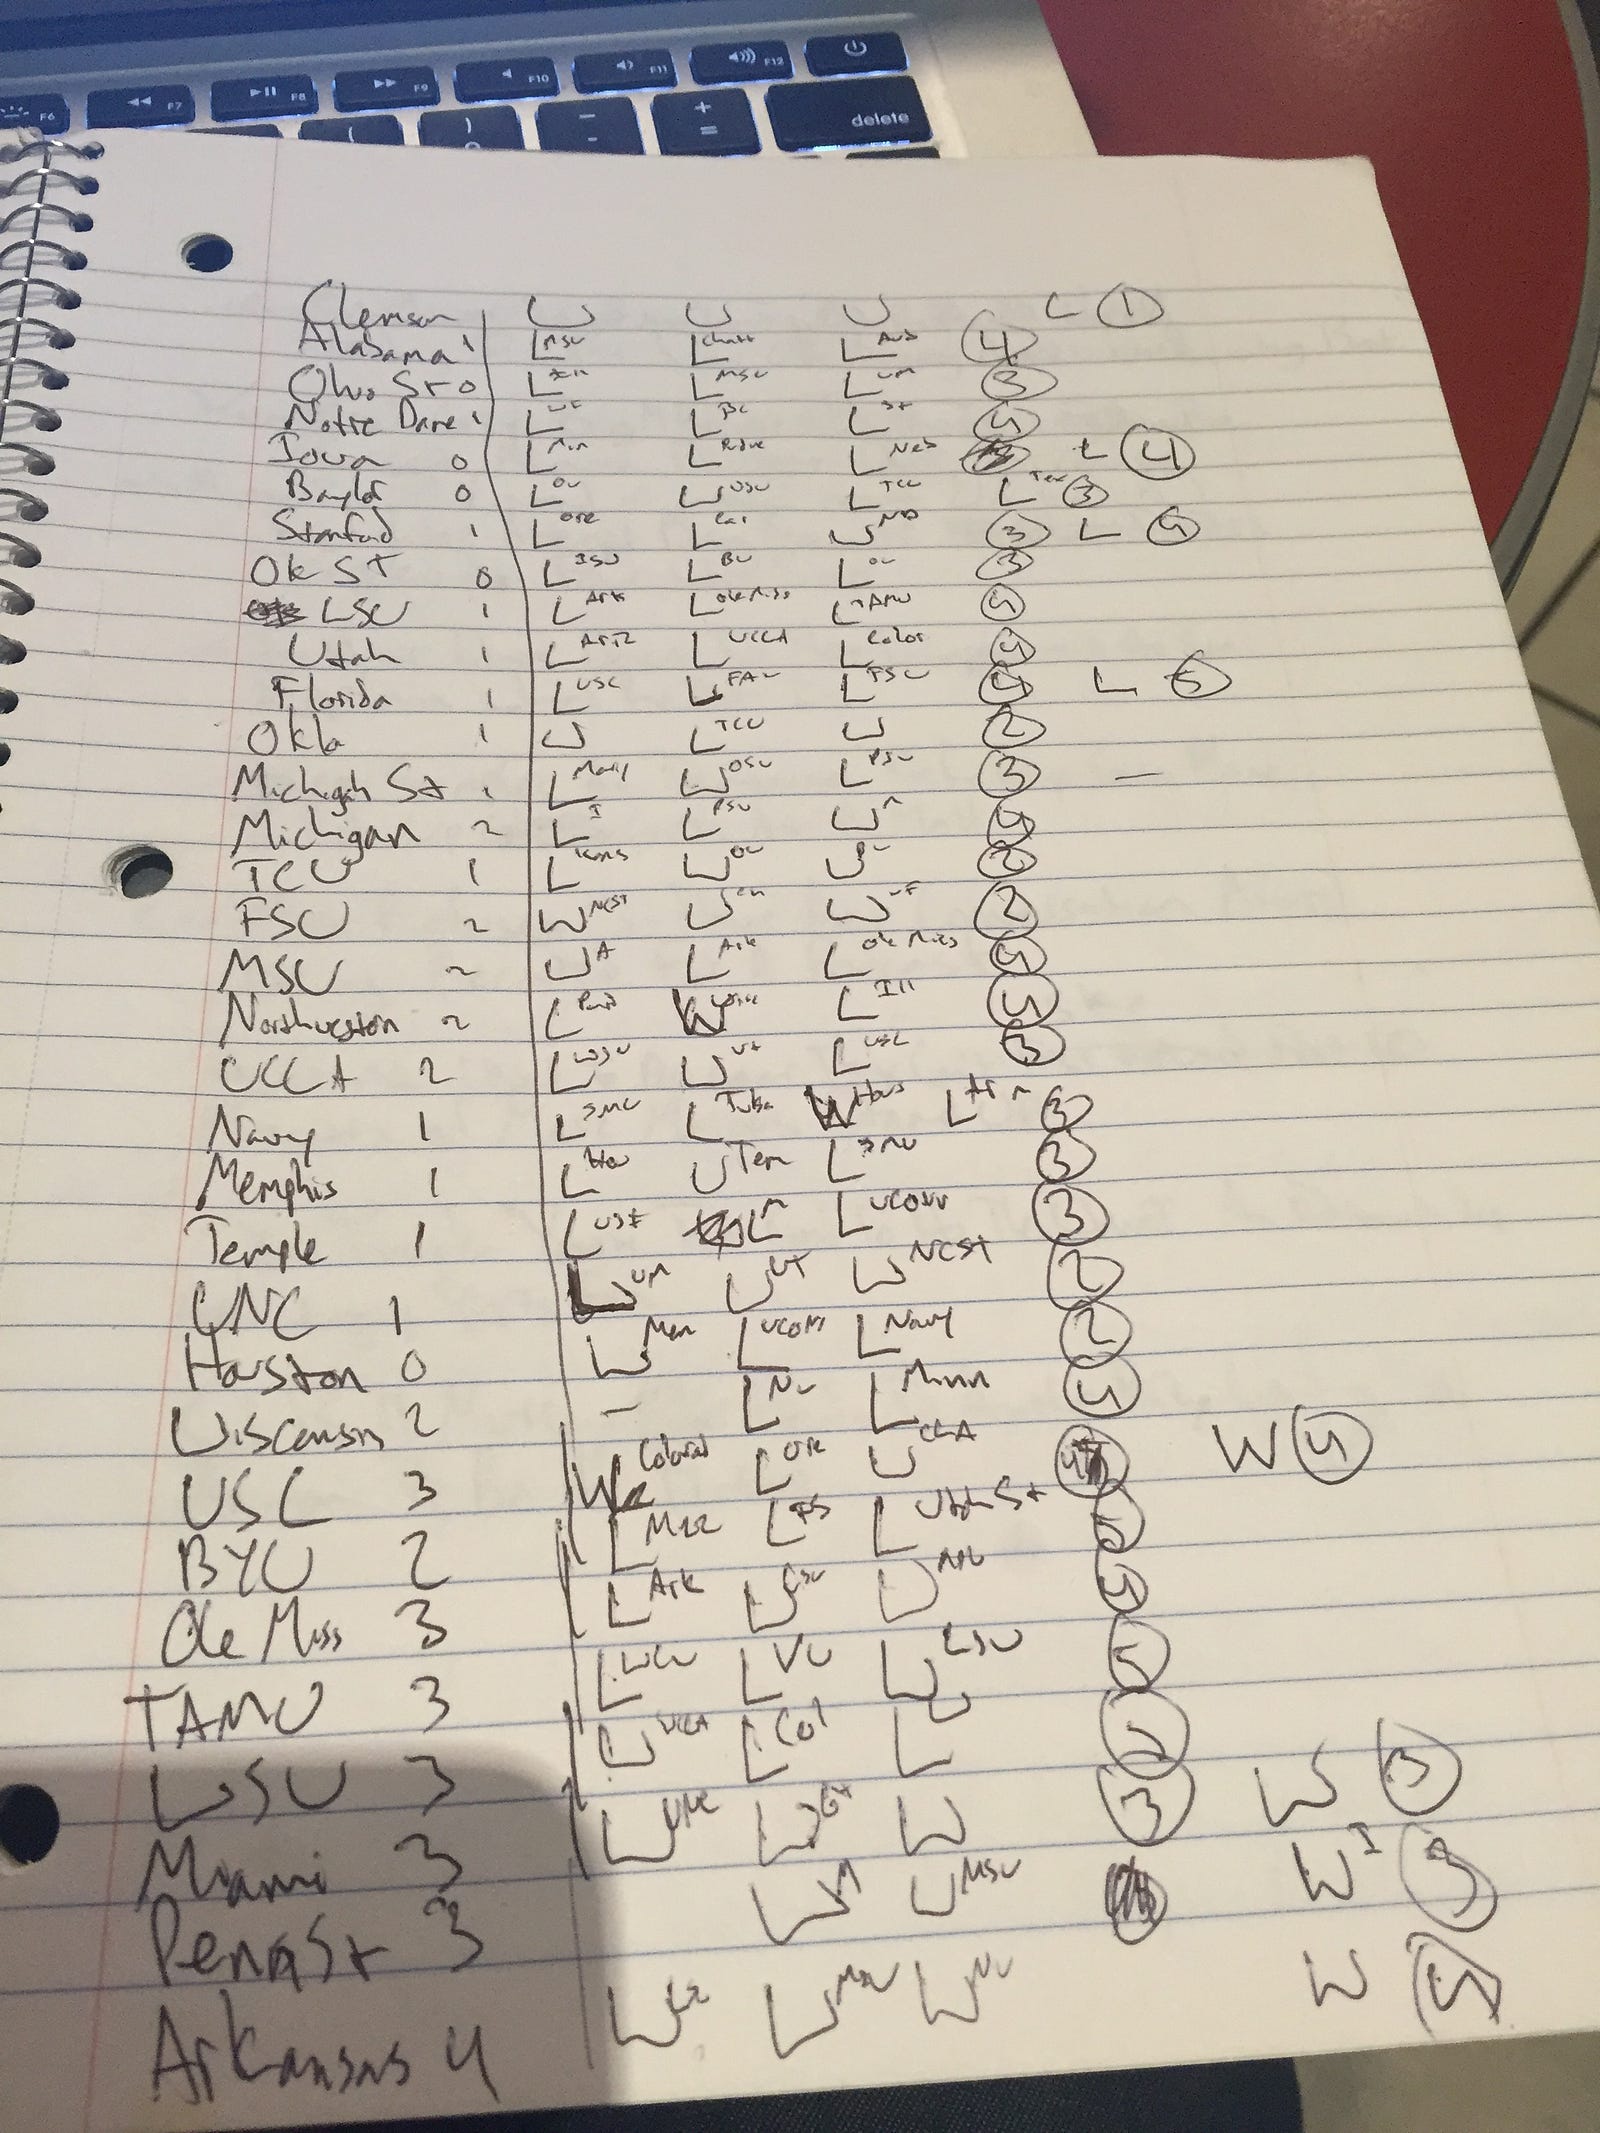 F6 F7 F8 F9 F10 F11 F12
delete
Clemson W W W L 1
Alabama 1 L MSU L Chatt L Aub 4
Ohio St 0 L Ill L MSU L UM 3
Notre Dame 1 L L BC L St 4
Iowa 0 L Min L L Neb L 4
Baylor 0 L OU W OSU L TCU L Tex 3
Stanford 1 L Ore L Cal W ND 3 L 4
Ok ST 0 L ISU L BU L OU 3
LSU 1 L Ark L Ole Miss L TAMU 4
Utah 1 L Ariz L UCLA L Color 4
Florida 1 L USC L FAU L FSU 4 L 5
Okla 1 W L TCU W 2
Michigan St 1 L Mary W OSU L PSU 3 –
Michigan 2 L I L PSU 4
TCU 1 L Kans W OU 2
FSU 2 W NCST W W UF 2
MSU 2 W A L Ark L Ole Miss 4
Northwestern 2 L W Wisc L Ill 4
UCLA 2 L WSU W Ut L USC 3
Navy 1 L SMU L Tulsa W Hous L Arm 3
Memphis 1 L Hou W Tem L SMU 3
Temple 1 L USF L M L UCONN 3
UNC 1 W UM W VT W NCST 2
Houston 0 W Mem L UCONN L Navy 2
Wisconsin 2 – L NU L Minn 4
USC 3 W Colorad L Ore W UCLA W 4
BYU 2 L Miz L FS L Utah St 5
Ole Miss 3 L Ark W LSU W MSU 4
TAMU 3 L L VU W LSU 5
WSU 3 W UCLA L Col L W 3
Miami 3 W UNC W GT W 3
Penn St 3 W M W MSU W I 3
Arkansas 4 W W MSU W W